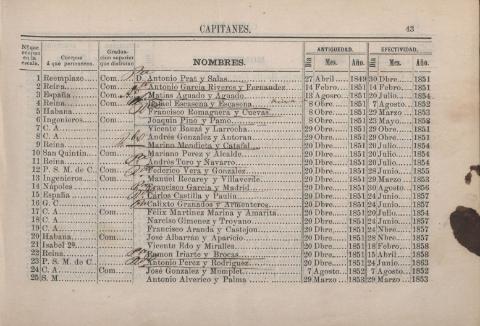 CAPITANES. 43
Nº que ocupan en la escala. Cuerpos á que pertenecen. Gradua- cion superior que disfrutan NOMBRES. ANTIGUEDAD. EFECTIVIDAD.
Dia Mes. Año. Dia Mes. Año.
1 Reemplazo.. Com. D. Antonio Prat y Salas 27 Abril 1849 30 Dbre. 1851
2 Reina. Com. Antonio García Riveros y Fernandez 14 Febro. 1851 14 Febro. 1851
3 España Com. Matias Aguado y Aguado 18 Agosto. 1851 20 Julio 1854
4 Reina Com. Escasena y Escasena 8 Obre. 1851 7 Agosto 1852
5 Habana Francisco Romaguera y Cuevas 8 Obre. 1851 29 Marzo 1853
6 Ingenieros. Com. Joaquin Pino y Pamo. 8 Obre. 1851 23 Mayo 1856
7 C. A. Vicente Bauzá y Larrocha. 29 Obre. 1851 29 Obre. 1851
8 C. A. Andrés Gonzalez y Antoran 29 Obre. 1851 29 Obre. 1851
9 Reina Marino Mendicta y Catafal 29 Obre. 1851 20 Julio 1854
10 San Quintin. Com. Mariano Perez y Alcalde 20 Dbre. 1851 20 Julio 1854
11 Reina Andrés Toro y Navarro 20 Dbre. 1851 20 Julio 1854
12 P. S. M. de C. Com. Federico Vera y Gonzalez 20 Dbre. 1851 28 Dbre. 1855
13 Ingenieros. Com. Manuel Recarey y Villaverde 20 Dbre. 1851 29 Marzo 1853
14 Nápoles Francisco García y Madrid 20 Dbre. 1851 30 Agosto 1856
15 España Cárlos Castilla y Paulin 20 Dbre. 1851 24 Junio 1857
16 G. C. Calixto Granados y Armenteros 20 Dbre. 1851 24 Junio 1857
17 C. A. Com. Félix Martinez Marina y Amarita 20 Dbre. 1851 24 Junio 1857
18 C. A. Narciso Gimenez y Troyano 20 Dbre. 1851 24 Junio 1857
19 C. A. Francisco Aranda y Castejon 20 Dbre. 1851 24 Nbre. 1857
20 Habana Com. José Albarrán y Aparicio 20 Dbre. 1851 24 Nbre. 1857
21 Isabel 2ª. Vicente Edo y Miralles 20 Dbre. 1851 18 Febro. 1858
22 Reina Ramon Iriarte y Brocas 20 Dbre. 1851 15 Abril 1858
23 P. S. M. de C. Com. Antonio Perez y Rodriguez 20 Dbre. 1851 24 Junio 1863
24 C. A. Com. José Gonzalez y Momplet 7 Agosto 1852 7 Agosto 1852
25 S. M. Antonio Alverico y Palma 29 Marzo 1853 29 Marzo 1853